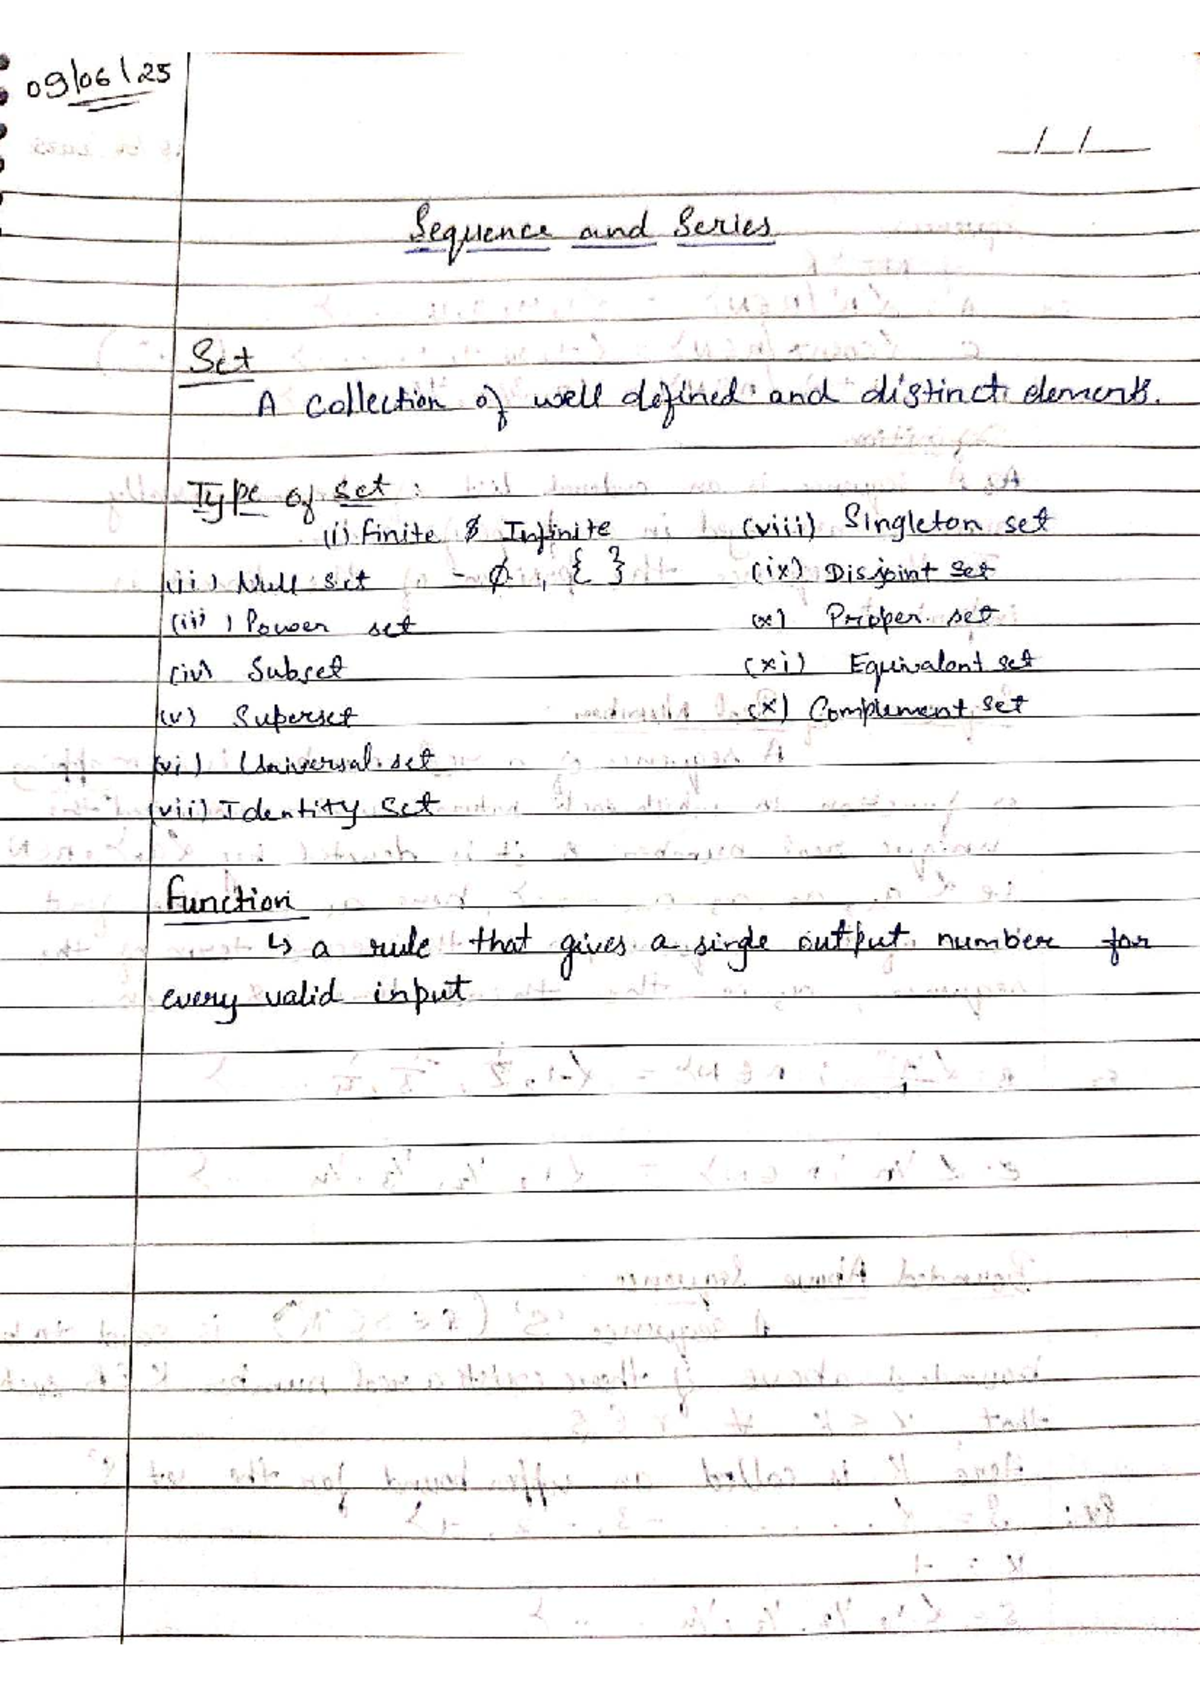 09/06/25
_/_/_
Sequence and Series
Set
A collection of well defined and distinct elements.
Type of Set :
(i) finite & Infinite
(ii) Null set - ∅, { }
(iii) Power set
(iv) Subset
(v) Superset
(vi) Universal set
(vii) Identity Set
(viii) Singleton set
(ix) Disjoint Set
(x) Proper set
(xi) Equivalent set
(x) Complement Set
Function
↳ a rule that gives a single output number for
every valid input